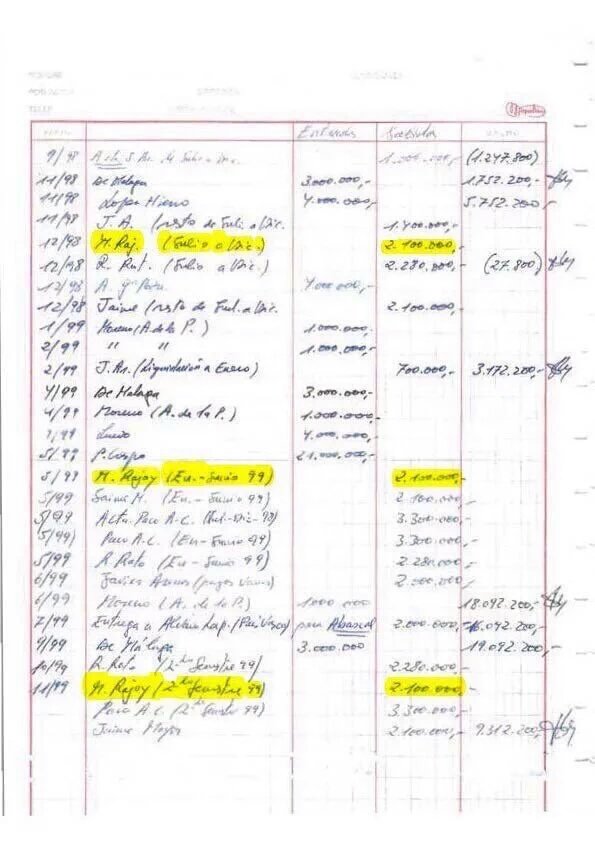 Entradas Salidas
9/98 1.000.000,- (1.247.800)
11/98 De Malaga 3.000.000,- 1.752.200,-
11/98 Lopez Hierro 4.000.000,- 5.752.200,-
11/98 J. A. (resto de Julio a Dic. 1.400.000,-
12/98 M. Raj. (Julio a Dic.) 2.100.000,-
12/98 R. Rat. (Julio a Dic.) 2.280.000,- (27.800)
12/98 A. 4.000.000,-
12/98 Jaime (resto de Jul. a Dic. 2.100.000,-
1/99 Moreno (A. de la P.) 1.000.000,-
2/99 " " 1.000.000,-
2/99 (Liquidación a Enero) 700.000,- 3.172.200,-
4/99 De Malaga 3.000.000,-
4/99 Moreno (A. de la P.) 1.000.000,-
4.000.000,-
5/99 P. Crespo 21.000.000,-
5/99 M. Rajoy (En.- Junio 99) 2.100.000,-
5/99 Jaime M. (En.- Junio 99) 2.100.000,-
5/99 Paco A.C. 3.300.000,-
5/99 Paco A.C. (En- Junio 99) 3.300.000,-
5/99 R. Rato (En- Junio 99) 2.280.000,-
6/99 Javier Arenas (pagos varios) 2.000.000,-
6/99 Moreno (A. de la P.) 1.000.000 18.092.200,-
7/99 Entrega a (País Vasco) para Abascal 2.000.000,- 16.092.200,-
9/99 De Málaga 3.000.000 19.092.200,-
10/99 R. Rato (2º Semestre 99) 2.280.000,-
11/99 M. Rajoy (2º Semestre 99) 2.100.000,-
Paco A.C. (2º Semestre 99) 3.300.000,-
Jaime Mayor 2.100.000,- 9.312.200,-